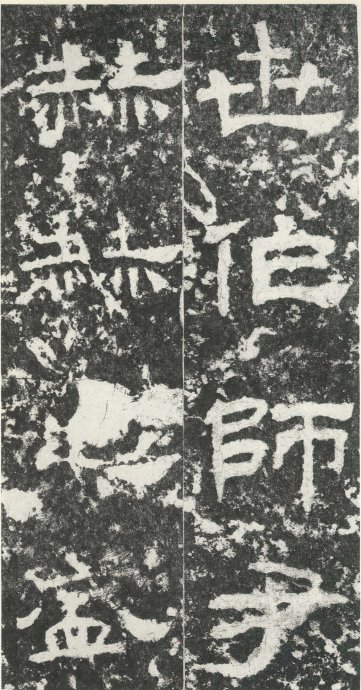 世伯師尹
赫赫孟